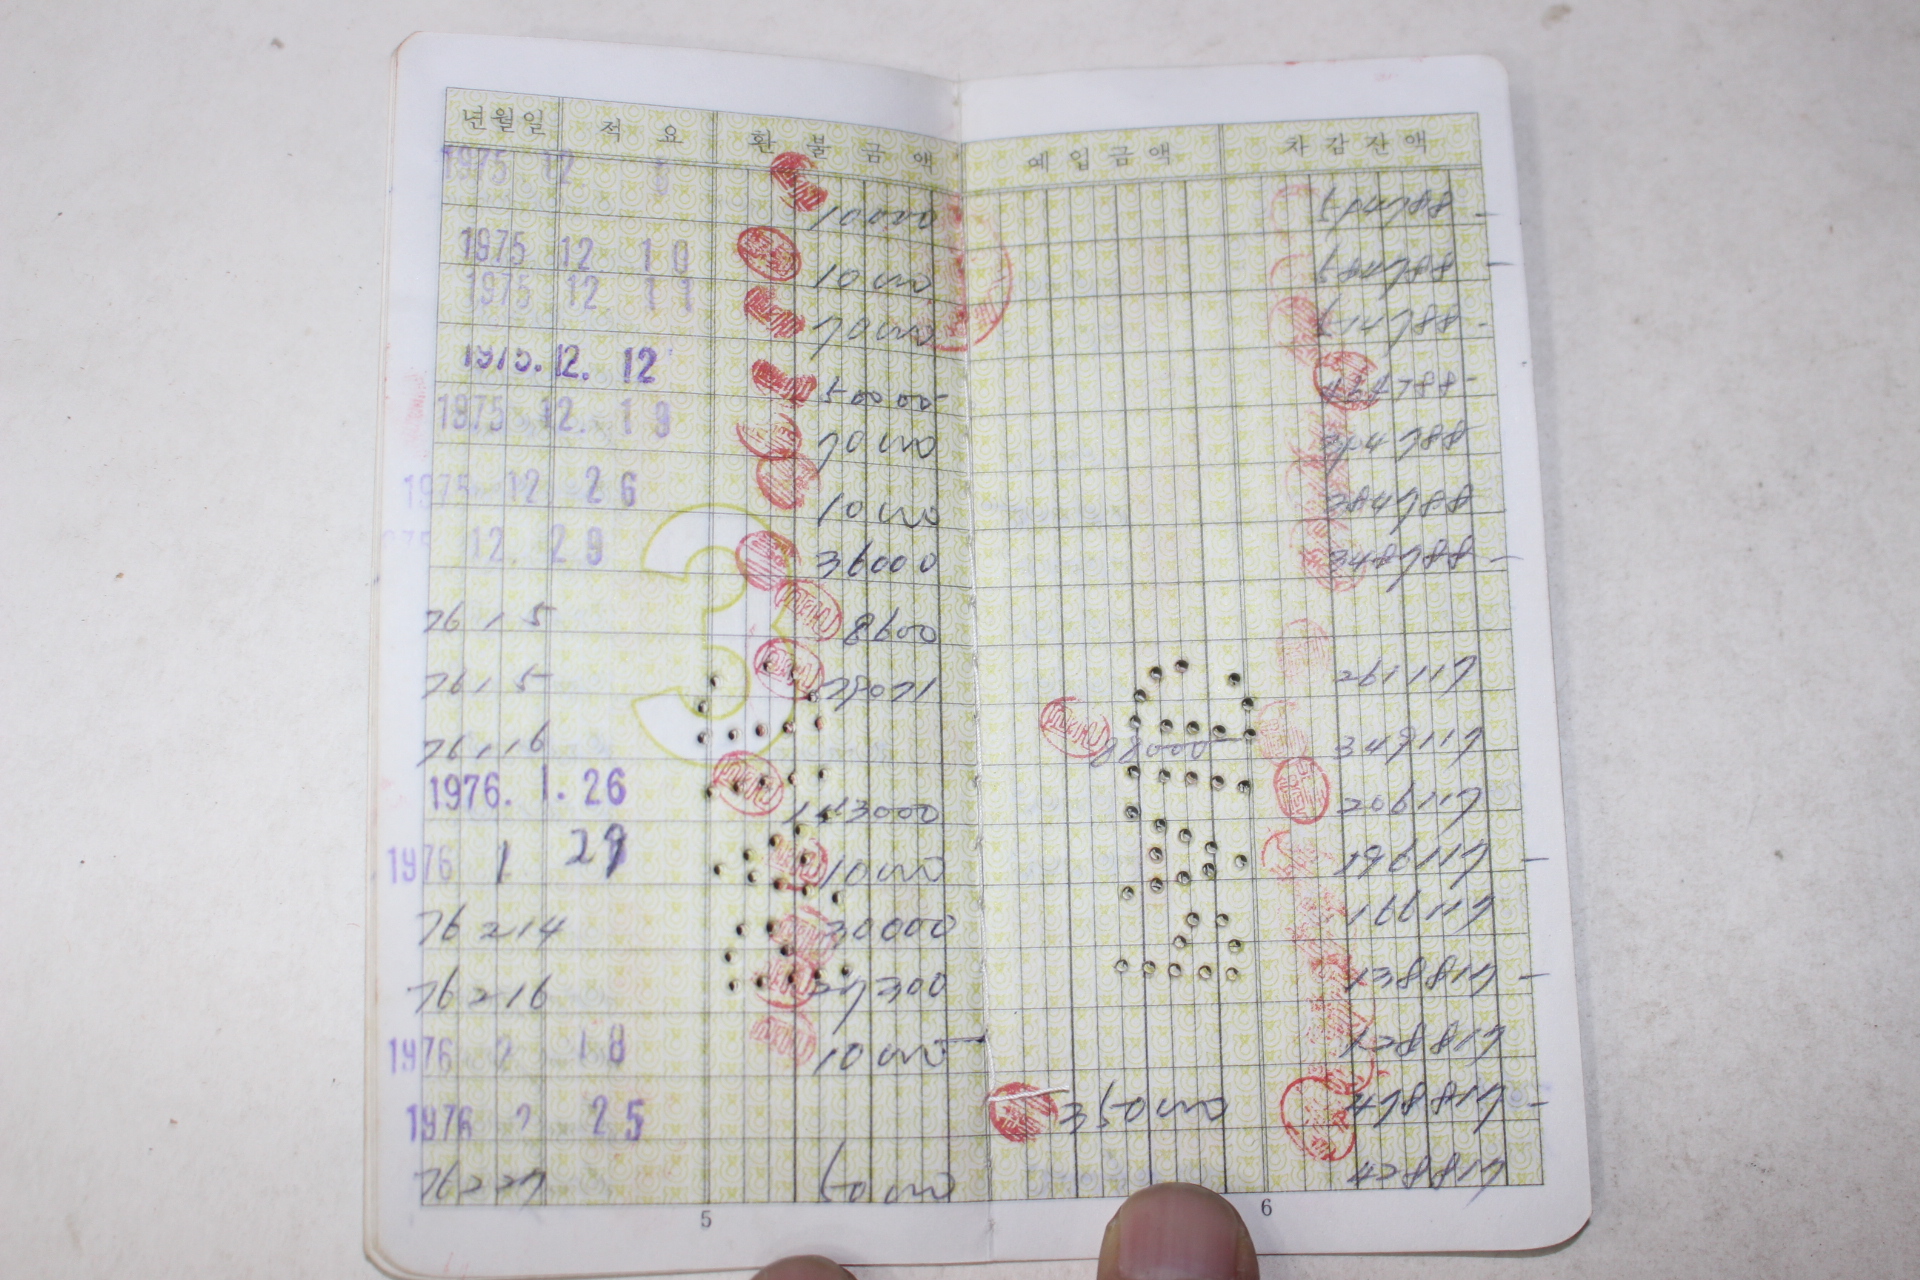 년월일 적 요 환 불 금 액 예 입 금 액 차 감 잔 액
1975 12 1 10000 594788-
1975 12. 10 10000 584788-
1975 12 11 70000 514788-
1975.12. 12 50000- 464788-
1975 12. 19 70000 394788
1975 12 26 10000 384788
1975 12. 29 36000 348788-
76 1 5 8600
76 1 5 79071 261117
76 1 16 88000- 349117
1976. 1. 26 143000 206117
1976 1 29 10000 196117-
76 2 14 30000 166117
76 2 16 27300 138817-
1976 2 18 10000- 128817
1976 2 25 350000 478817-
76 2 27 50000 428817
5 6